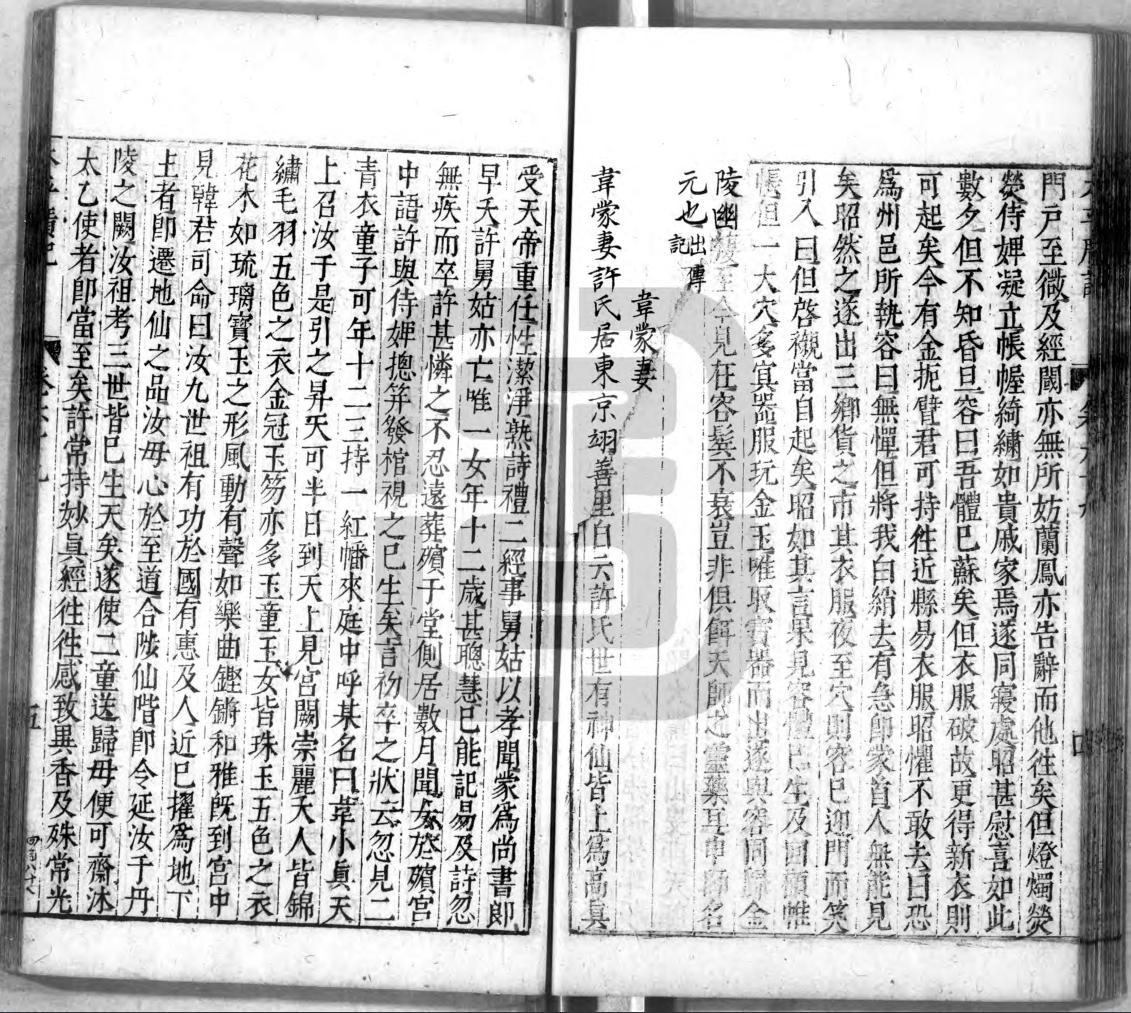 門戶至微及經闈亦無所妨蘭鳳亦告辭而他往矣但燈燭熒
熒侍婢凝立帳幄綺繡如貴戚家焉遂同寢處昭甚慰喜如此
數夕但不知昏旦容曰吾體已蘇矣但衣服破故更得新衣則
可起矣今有金扼臂君可持往近縣易衣服昭懼不敢去曰恐
爲州邑所執容曰無憚但將我白綃去有急即蒙首人無能見
矣昭然之遂出三鄉貨之市其衣服夜至穴則容已迎門而笑
引入曰但啓櫬當自起矣昭如其言果見容體已生及回顧帷
帳但一大穴多冥器服玩金玉唯取寶器而出遂與容同歸金
陵幽棲至今見在容鬢不衰豈非俱餌天師之靈藥耳申師名
元也出傳記
韋蒙妻
韋蒙妻許氏居東京翊善里自云許氏世有神仙皆上爲高眞
受天帝重任性潔淨熟詩禮二經事舅姑以孝聞蒙爲尚書郎
早夭許舅姑亦亡唯一女年十二歲甚聰慧已能記易及詩忽
無疾而卒許甚憐之不忍遠葬殯于堂側居數月聞女於殯宮
中語許與侍婢摠笄發棺視之已生矣言初卒之狀云忽見二
青衣童子可年十二三持一紅幡來庭中呼某名曰韋小眞天
上召汝于是引之昇天可半日到天上見宮闕崇麗天人皆錦
繡毛羽五色之衣金冠玉笏亦多玉童玉女皆珠玉五色之衣
花木如琉璃寶玉之形風動有聲如樂曲鏗鏘和雅旣到宮中
見韓君司命曰汝九世祖有功於國有惠及人近已擢爲地下
主者卽遷地仙之品汝母心於至道合陟仙階卽令延汝于丹
陵之闕汝祖考三世皆已生天矣遂使二童送歸母便可齋沐
太乙使者卽當至矣許常持妙眞經往往感致異香及殊常光
五